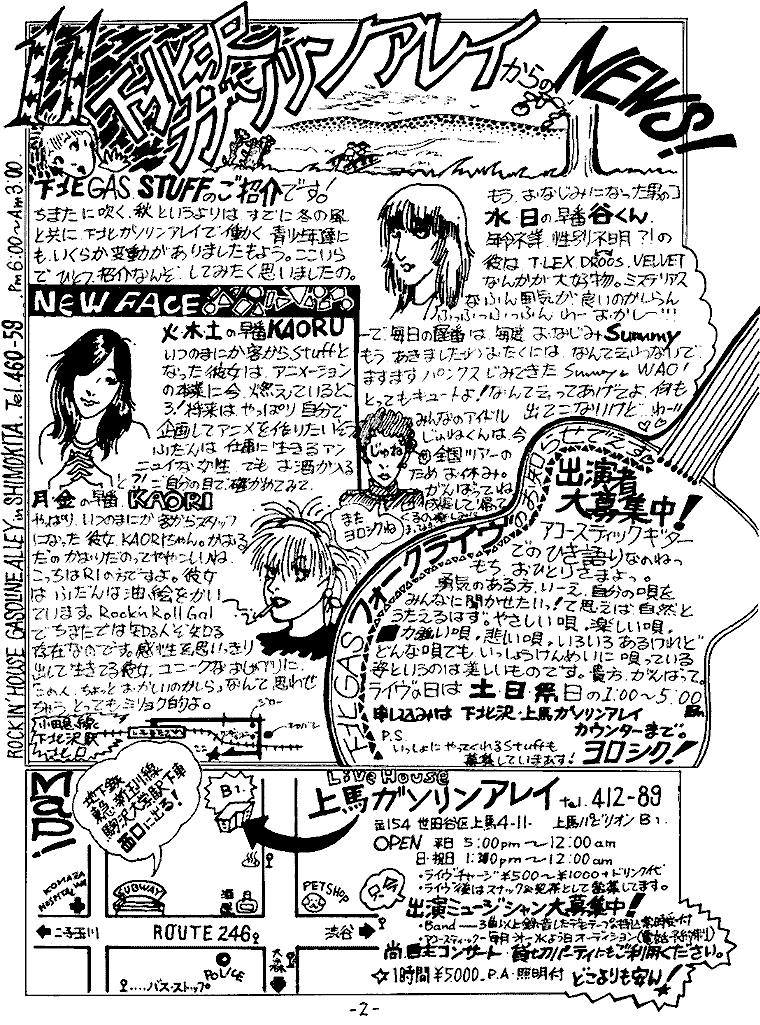 11
下北沢ガソリンアレイからのNEWS!
下北GAS. STUFFのご紹介です!
ちまたに吹く、秋というよりはすでに冬の風
と共に、下北ガソリンアレイで働く、青少年達に
もいくらか変動がありましたもよう。ここいら
でひとつ、紹介なんぞしてみたく思いましたの。
NEW FACE
火・木・土の早番 KAORU
いつのまにか客からStuffと
なった彼女は、アニメーション
の本業に今、燃えているとこ
ろ!将来はやっぱり自分で
企画してアニメを作りたいそう
ふだんは仕事に生きるアン
ニュイな女性、でもお酒が入る
と?!ご自分の目で確かめてみて。
月・金の早番. KAORI
やっぱり、いつのまにか客からスタッフ
になった彼女KAORIちゃん。かおる
だのかおりだのってややこしいね。
こっちはRIの方ですよ。彼女
はふだんは油絵をかい
ています。Rock'n Roll Gal
でちまたでは知る人ぞ知る
存在なのです。感性を思いっきり
出して生きてる彼女。ユニークなおしゃべりに、
この人、ちょっとおかしいのかしら、なんて思わせ
ちゃう、とってもミリョク的よ。
もう、おなじみになった男のコ
水・日の早番 谷くん.
年令不詳、性別不明?!の
彼はT.LEX DOORS. VELVET
なんかが大好物。ミステリアス
なふん囲気が良いのかしらん
ふっふっふっふん わーおかしー!!!
で、毎日の遅番は、毎度おなじみ Summy
もうあきましたか?おたくには、なんて云いっ
ますますパンクスじみてきた Summy WAO!
とってもキュートよ!なんて云ってあげてよ、何も
出てこないけど、わーい♡♡
みんなのアイドル
じゅねくんは、今
全国ツアーの
ためお休み。
がんばってね
じゅね
また
ヨロシクね
下北GAS フォークライヴのお知らせでぇす
出演者
大募集中!
アコースティックギター
でのひき語りなのねっ
もち、おひとりさまよっ。
勇気のある方、いーえ、自分の唄を
みんなに聞かせたい!て思えば自然と
うたえるはず。やさしい唄。楽しい唄。
力強い唄。悲しい唄。いろいろあるけれど
どんな唄でも いっしょけんめいに唄っている
姿というのは美しいものです。貴方、がんばって。
ライヴの日は 土日祭日の1:00〜5:00
申し込みは 下北沢・上馬ガソリンアレイ
カウンターまで。
P.S.
いっしょにやってくれるStuffも
募集していまぁす! ヨロシク!
ROCKIN' HOUSE GASOLINE ALLEY in SHIMOKITA. Tel. 460-58 . Pm 6:00〜Am 3:00.
小田急線
下北沢駅
北口
MaP!
地下鉄
東急・新玉川線
駒沢大学駅下車
西口に出る!
B1.
KOMAZA
HOSPITAL
SUBWAY
酒
PETSHOP
二子玉川
ROUTE 246
渋谷
POLICE
大森
バス・ストップ
Live House
上馬ガソリンアレイ tel. 412-89
〒154 世田谷区上馬4-11- 上馬パビリオン B1.
OPEN 平日 5:00pm〜12:00am
日・祝日 1:00pm〜12:00am
・ライヴチャージ ¥500〜¥1000+ドリンク代
・ライヴ後はスナック&喫茶として営業してます。
出演ミュージシャン大募集中!
・Band——3曲以上録音したデモテープを持込常時受付
・アコースティック—毎月オーディション(電話予約制)
尚自主コンサート・貸切パーティにもご利用ください。
☆1時間¥5000. P.A・照明付 どこよりも安い!
-2-